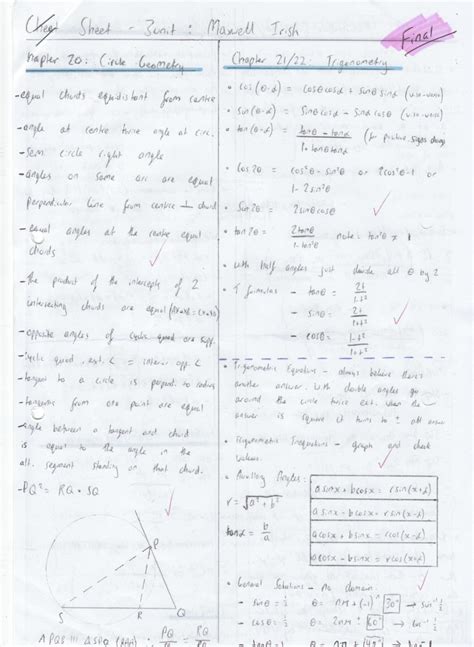 Cheat Sheet - 3unit : Maxwell Irish
Final
Chapter 20: Circle Geometry
-equal chords equidistant from centre
-angle at centre twice angle at circ.
-Semi circle right angle
-angles on same arc are equal
perpendicular line from centre ⊥ chord
-equal angles at the centre equal
chords
-the product of the intercepts of 2
intersecting chords are equal
-opposite angles of cyclic quad are supp.
-cyclic quad. ext. ∠ = interior opp. ∠
-tangent to a circle is perpend. to radius
-tangents from one point are equal
-angle between a tangent and chord
is equal to the angle in the
alt. segment standing on that chord.
-PQ² = RQ · SQ
P
S R Q
Chapter 21/22: Trigonometry
• cos(θ-α) = cosθcosα + sinθsinα (vise-versa)
• sin(θ-α) = sinθcosα - sinαcosθ (vise-versa)
• tan(θ-α) = tanθ - tanα (for positive, signs change)
1+tanθtanα
• cos2θ = cos²θ-sin²θ or 2cos²θ-1 or
1-2sin²θ
• sin2θ = 2sinθcosθ
• tan2θ = 2tanθ note: tan²θ x 1
1-tan²θ
• With half angles just divide all θ by 2
• T formulas - tanθ = 2t
1-t²
- sinθ = 2t
1+t²
- cosθ = 1-t²
1+t²
• Trigonometric Equations - always believe there's
another answer. With double angles go
around the circle twice ect. when the
answer is square it turns to ± all areas
• Trigonometric Inequations - graph and check
values.
• Auxiliary Angles:
r = √a² + b²
tanα = b
a
asinx + bcosx = rsin(x+α)
asinx - bcosx = rsin(x-α)
acosx + bsinx = rcos(x-α)
acosx - bsinx = rcos(x+α)
• General Solutions - No domain
- sinθ = ½ θ = nπ + (-1)ⁿ 30° → sin⁻¹ ½
- cosθ = ½ θ = 2nπ ± 60° → cos⁻¹ ½